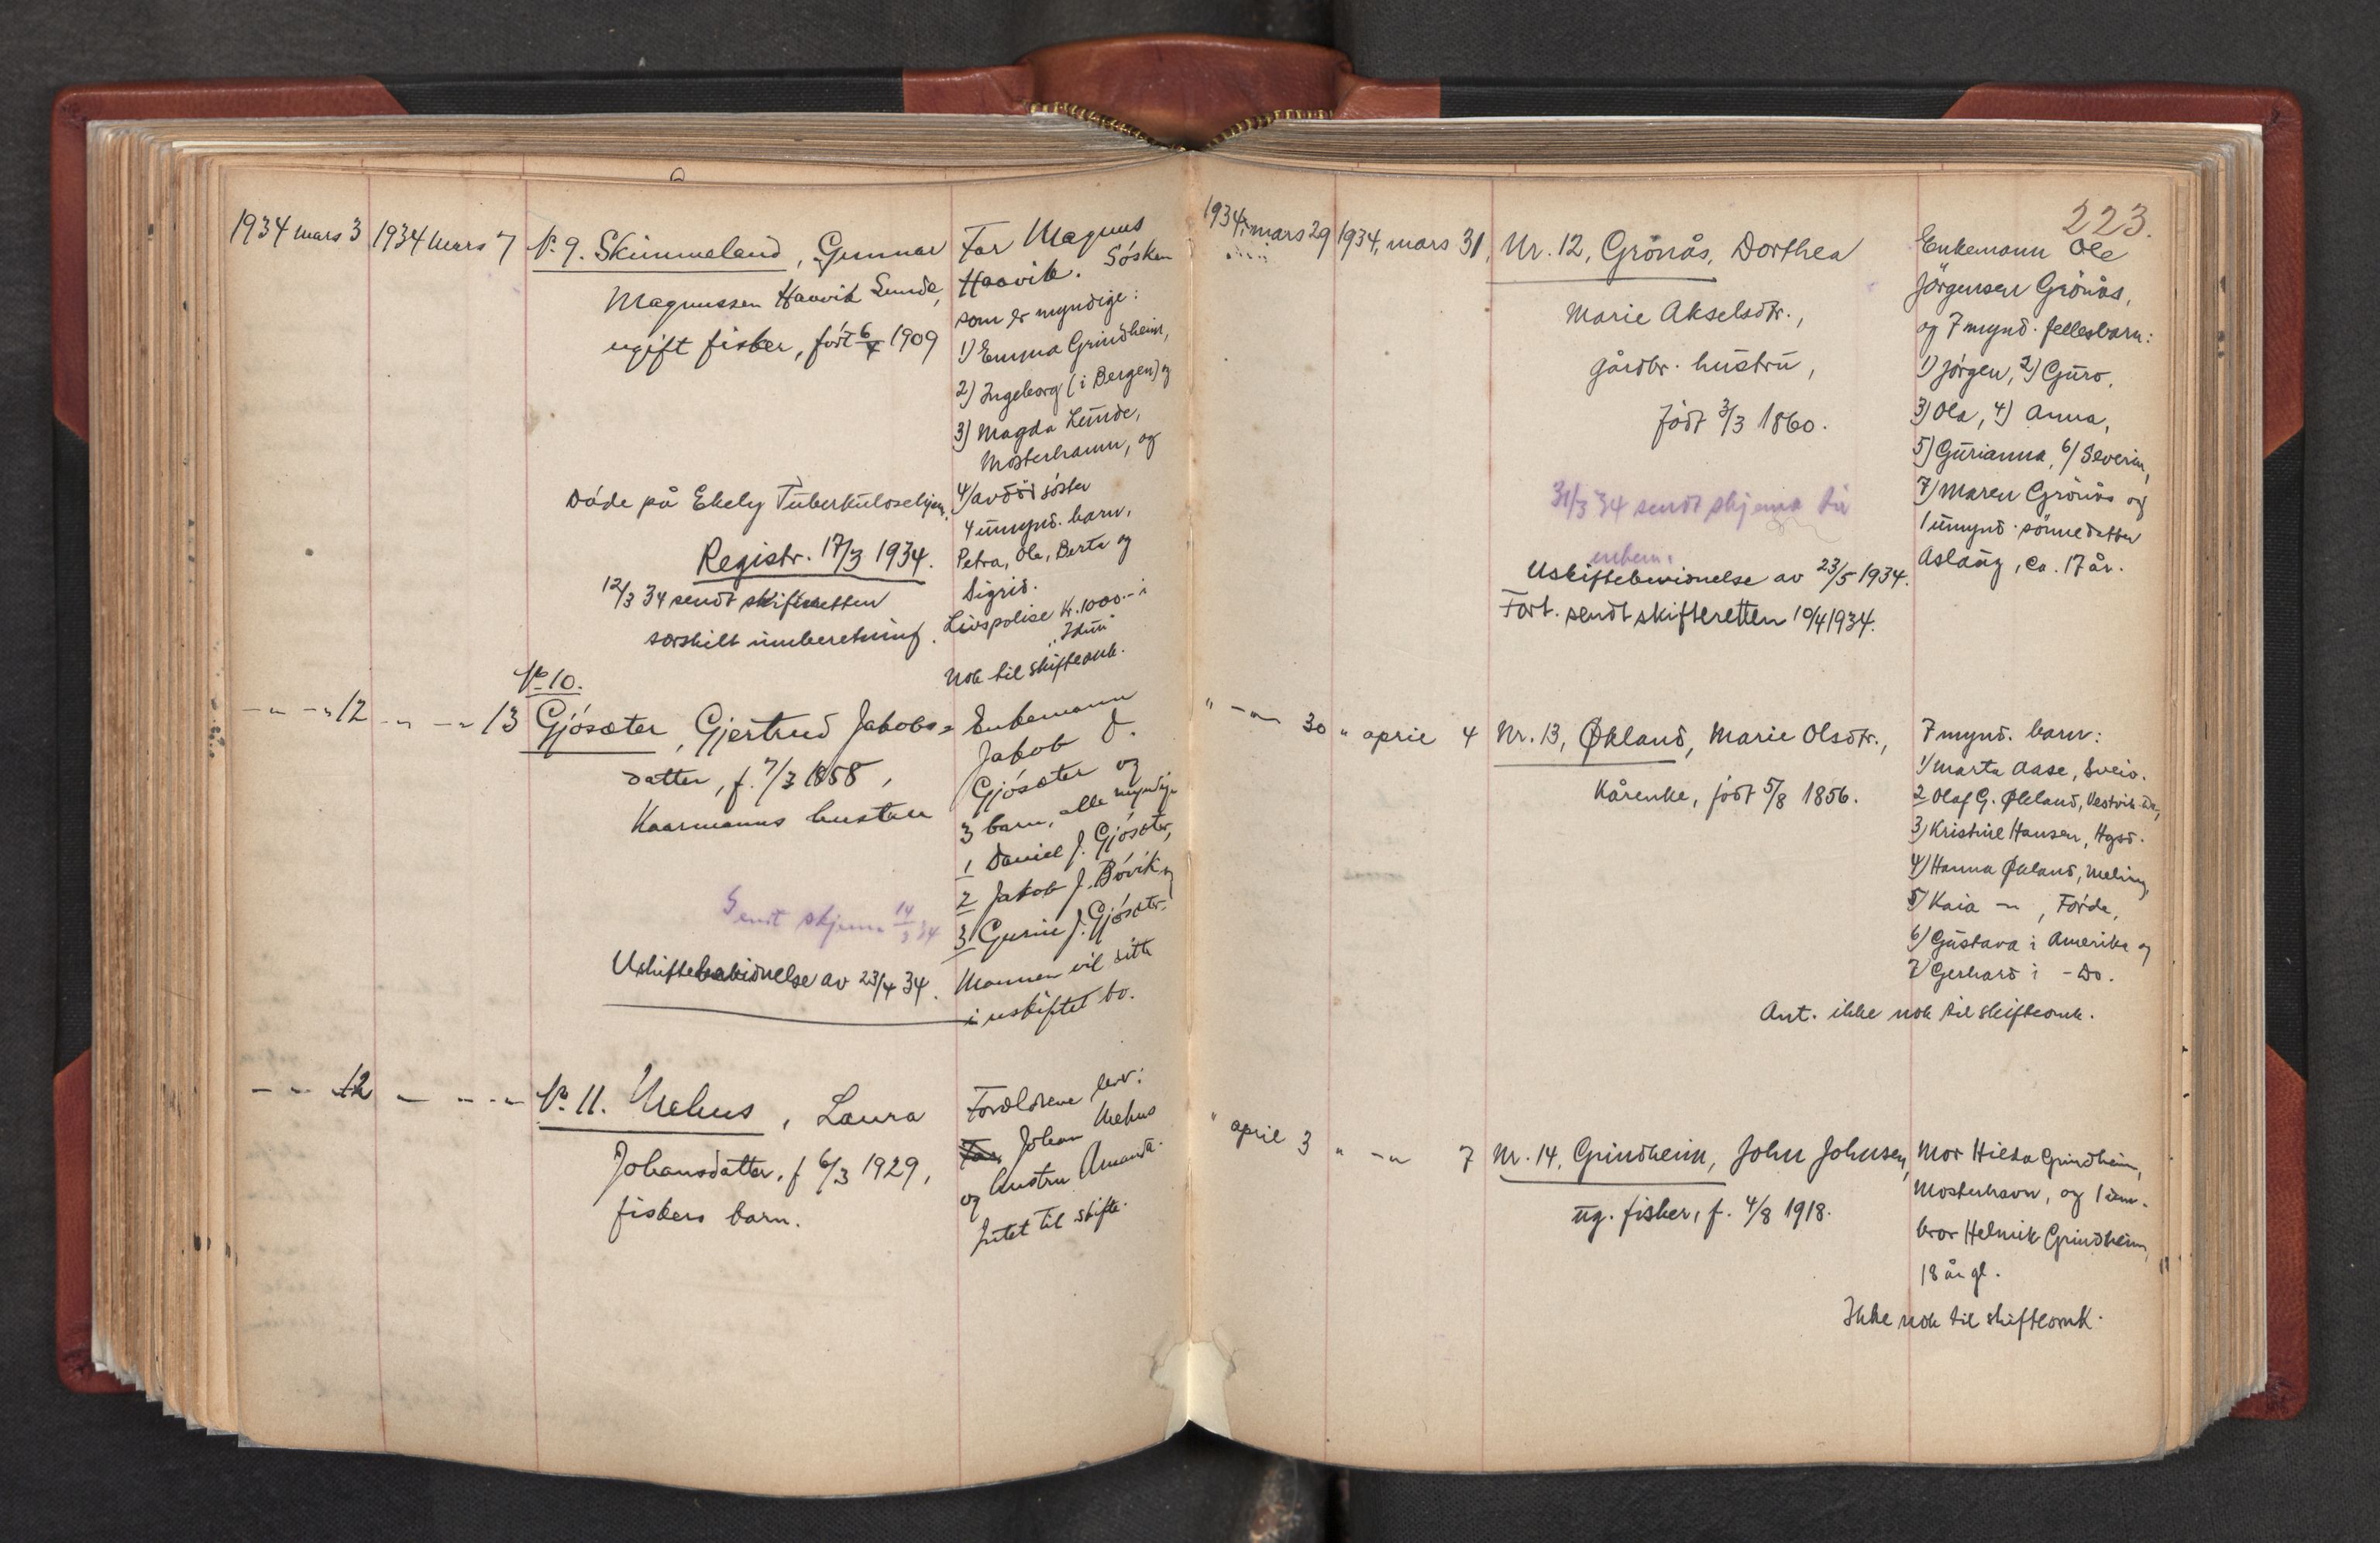 1934 mars 3 1934 mars 7 № 9. Skimmeland, Gunnar
Magnussen Haavik Lunde,
ugift fisker, født 6/4 1909
Døde på Ekely Tuberkulosehjem.
Registr. 17/3 1934.
12/3 34 sendt skifteretten
særskilt innberetning.
Far Magnus
Haavik. Søsken
som er myndige:
1) Emma Grindheim,
2) Ingeborg (i Bergen) og
3) Magda Lunde,
Mosterhamn, og
4/ avdöd søster
4 umynd. barn,
Petra, Ola, Berta og
Sigrid.
Livspolise kr. 1000.- i
"Idun"
Nok til skifteomk.
№ 10.
— " — " 12 — " — " 13 Gjøsæter, Gjertrud Jakobs=
datter, f. 7/3 1858,
Kaarmanns hustru
Sendt skjema 14/3 34
Uskiftebevidnelse av 23/4 34.
Enkemann
Jakob D.
Gjøsæter og
3 barn, alle myndige
1 Daniel J. Gjøsæter,
2 Jakob J. Bøvik og
3 Gurine J. Gjøsæter.
Mannen vil sitte
i uskiftet bo.
— " — 12 — " — " — № 11. Urehus, Laura
Johansdatter, f 6/3 1929,
fiskers barn.
Forældrene lever:
Far Johan Urehus
og hustru Amanda.
Intet til skifte.
223.
1934, mars 29 1934, mars 31, Nr. 12, Grönås, Dorthea
Marie Akselsdtr.,
gårdbr. hustru,
født 3/3 1860.
31/3 34 sendt skjema til
enkem.
Uskiftebevidnelse av 23/5 1934.
Fort. sendt skifteretten 10/4 1934.
Enkemann Ole
Jörgensen Grönås,
og 7 mynd. fellesbarn:
1) Jörgen, 2) Guro,
3) Ola, 4) Anna,
5) Gurianna, 6/ Severin,
7) Maren Grönås og
1 umynd. sönnedatter
Aslaug, ca. 17 år.
" — " — 30 " april 4 Nr. 13, Økland, Marie Olsdtr.,
Kårenke, født 5/8 1856.
7 mynd. barn:
1/ Marta Aase, Sveio.
2 Olaf G. Økland, Vestvik
3) Kristine Hansen, Hgsd.
4) Hanna Økland, Meling,
5) Kaia — " , Førde,
6) Gustava i Amerika og
7) Gerhard i — Do.
Ant. ikke nok til skifteomk.
" april 3 " — " 7 Nr. 14, Grindheim, John Johnsen,
ug. fisker, f. 4/8 1918.
Mor Hilda Grindheim,
Mosterhavn, og 1 um.
bror Helmik Grindheim,
18 år gl.
Ikke nok til skifteomk.